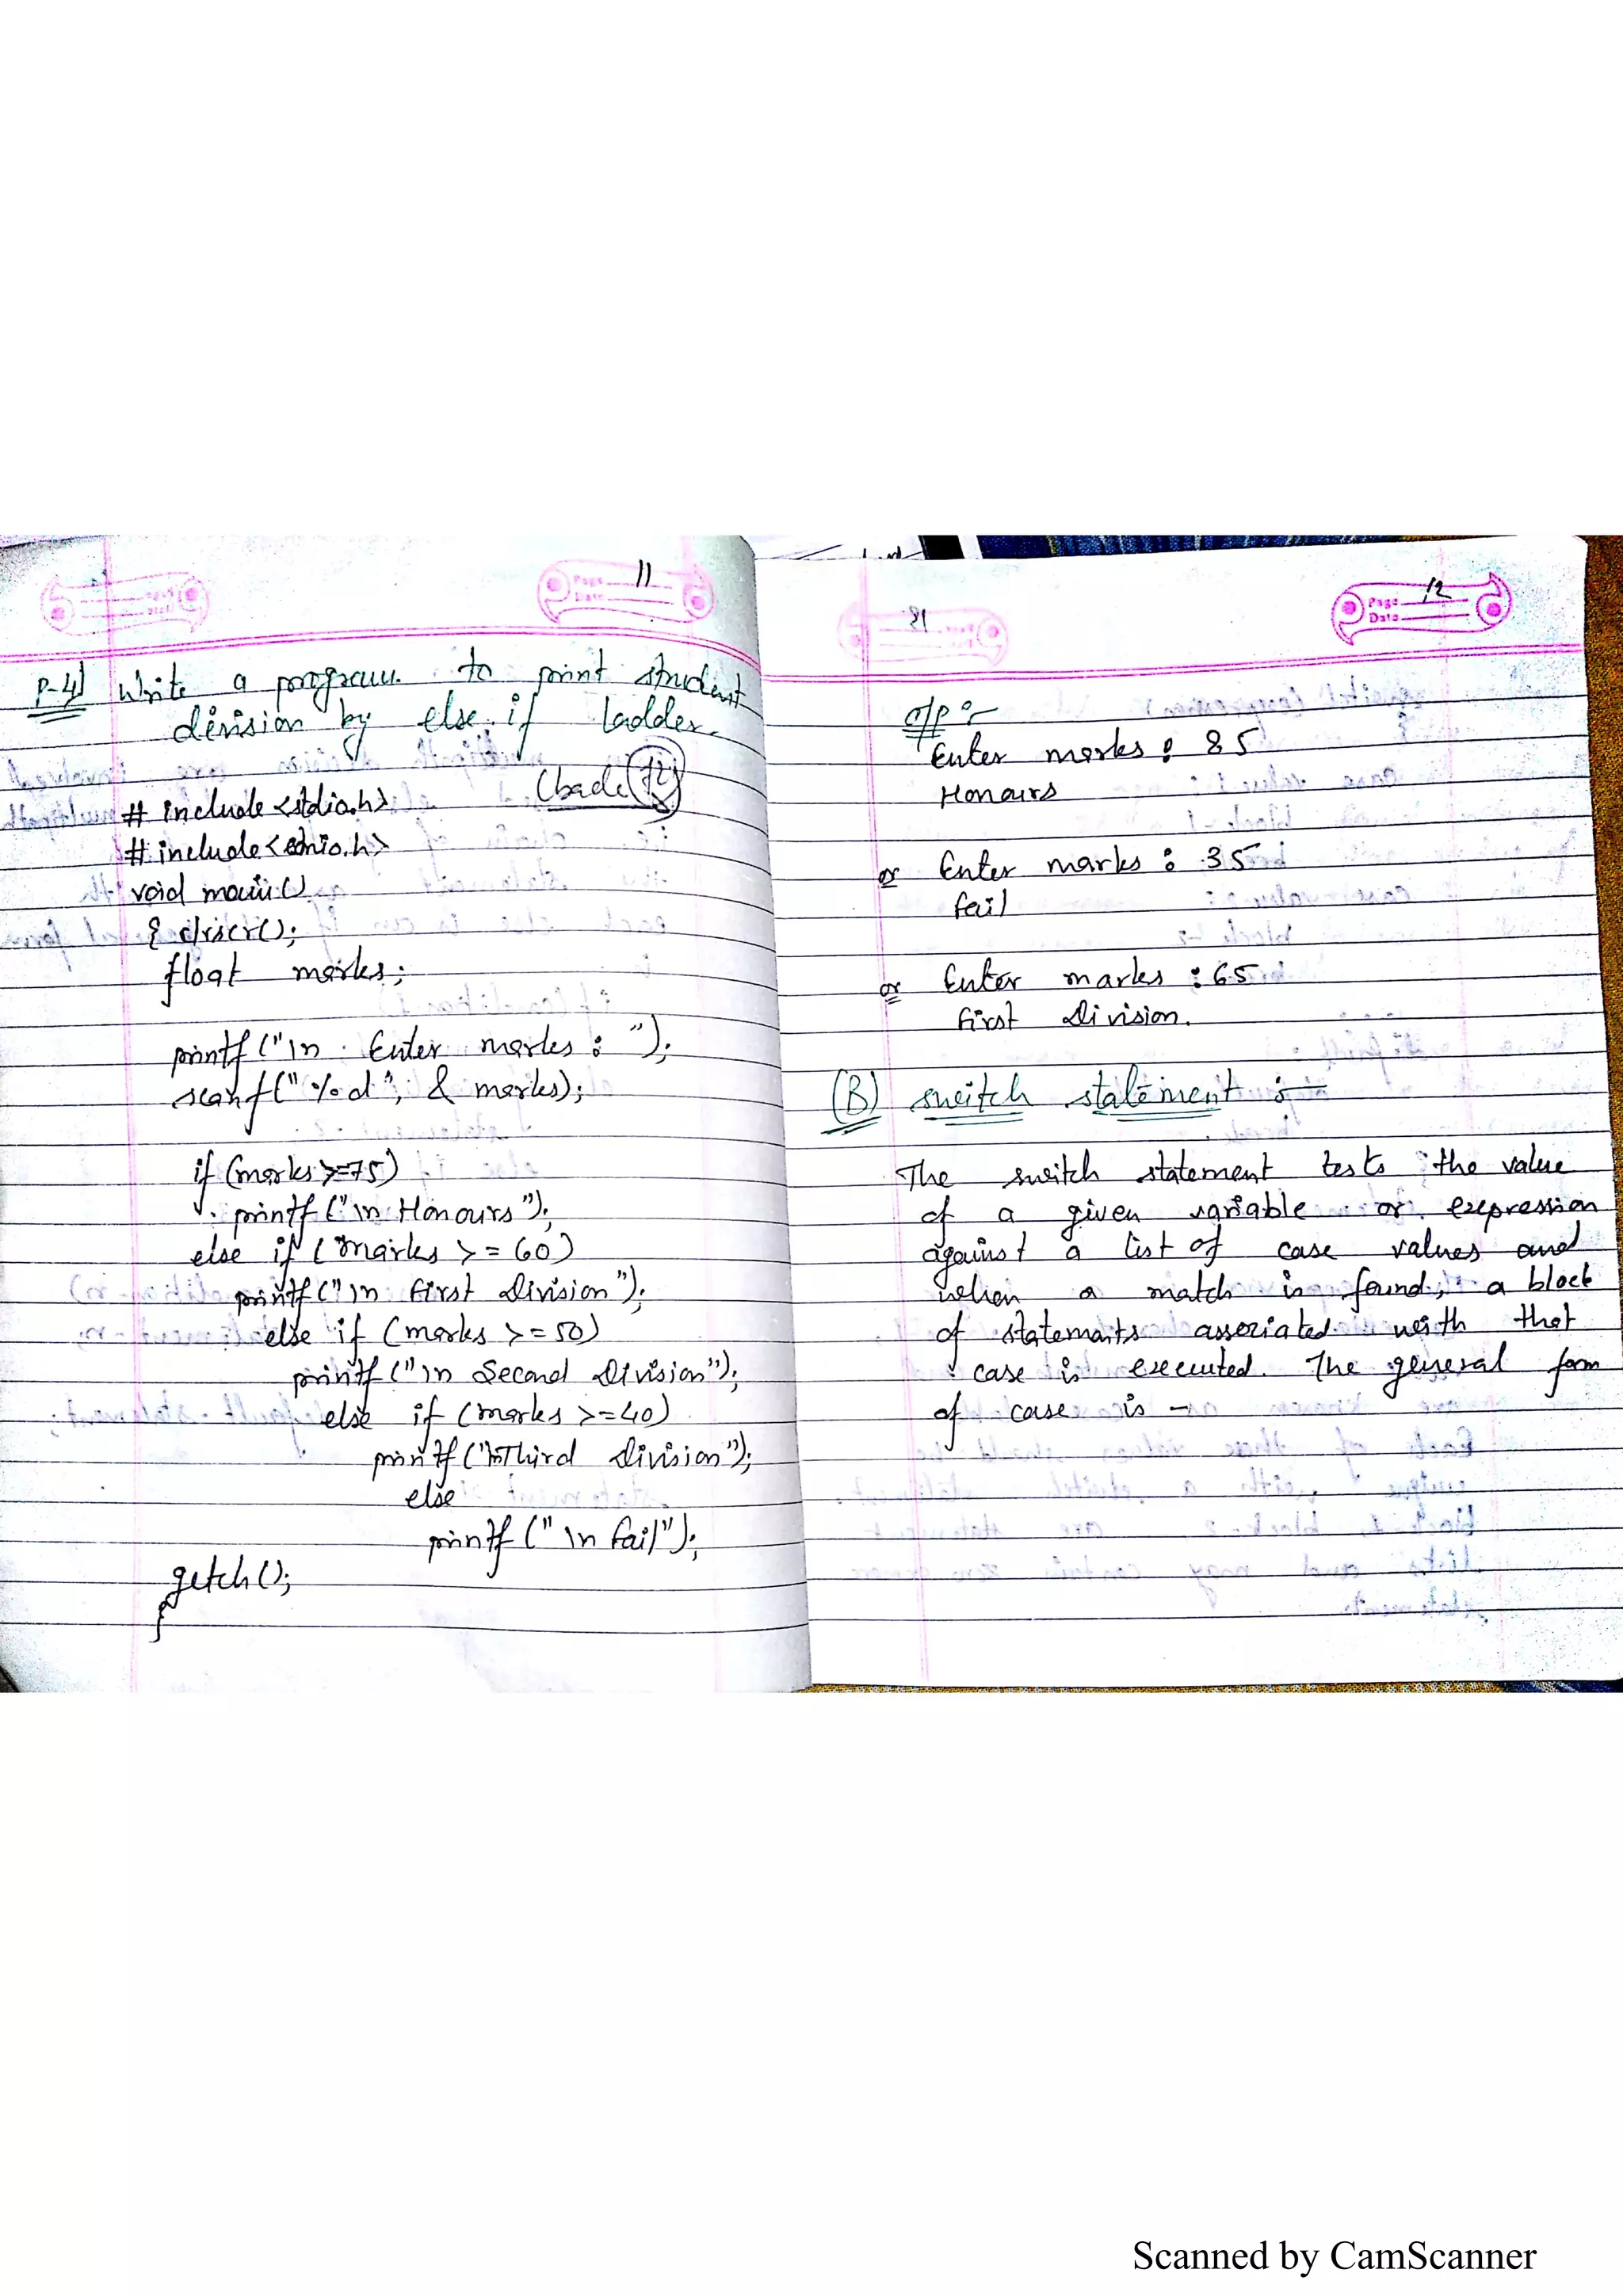 11
P-4) Write a program to print student
division by else if ladder.
# include <stdio.h>
# include <conio.h>
void main()
{ clrscr();
float marks;
printf ("\n Enter marks : ");
scanf ("%d", & marks);
if (marks >= 75)
printf ("\n Honours");
else if (marks >= 60)
printf ("\n First Division");
else if (marks >= 50)
printf ("\n Second Division");
else if (marks >= 40)
printf ("\n Third Division");
else
printf ("\n Fail");
getch();
}
Page 12
Date
O/P :-
Enter marks : 85
Honours
or Enter marks : 35
fail
or Enter marks : 65
First Division.
(B) switch statement :-
The switch statement tests the value
of a given variable or expression
against a list of case values and
when a match is found, a block
of statements associated with that
case is executed. The general form
of case is -
Scanned by CamScanner